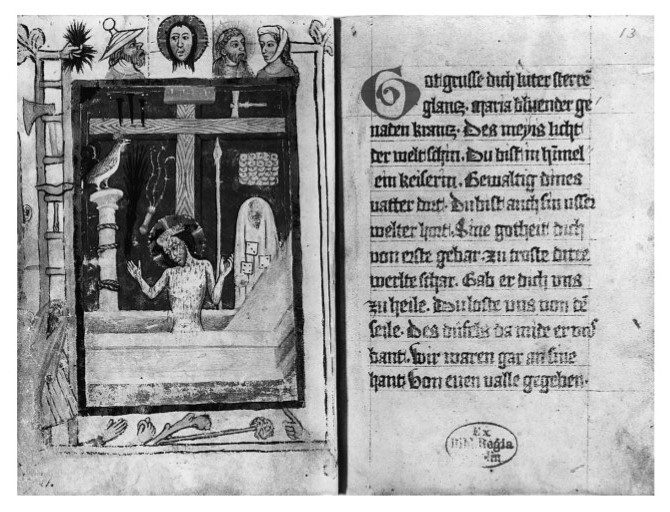 13
Got grusse dich luter sterre
glantz. Maria bluender ge
naden krantz. Des meyis licht
der welt schin. Du bist in himel
ein keiserin. Gewaltig dines
vatter dort. Du bist auch sin usser
welter hort. Sine gotheit dich
von erste gebar. zu troste dirre
werlte schar. Gab er dich uns
zu heile. Du loste uns von dē
seile. Des da mide er
bant. wir waren gar an sine
hant Von euen valle gegeben.
Ex
Bibl. Regia